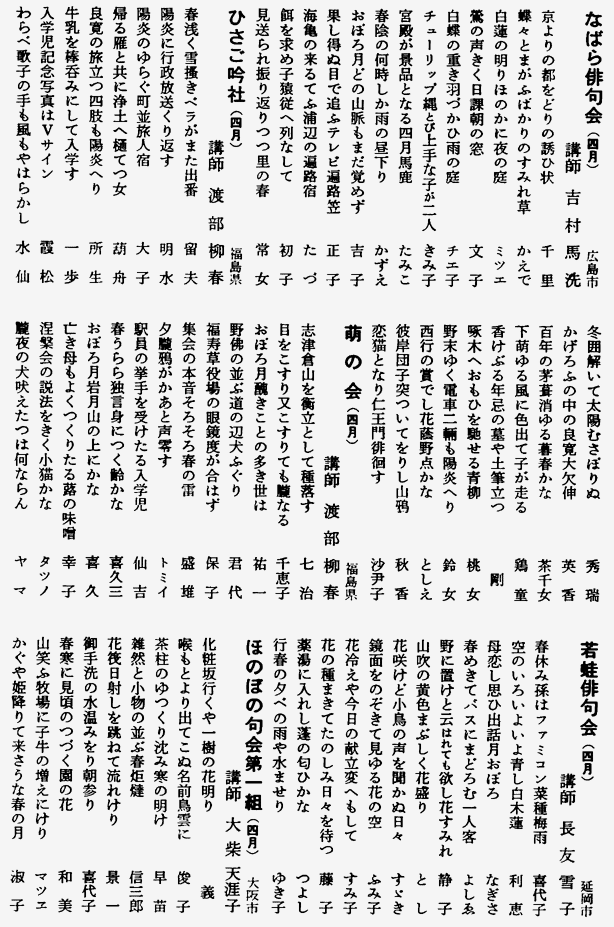 なばら俳句会（四月）
広島市
講師 吉村馬洗
京よりの都をどりの誘ひ状 千里
蝶々とまがふばかりのすみれ草 かえで
白蓮の明りほのかに夜の庭 ミツエ
鶯の声きく日課朝の窓 文子
白蝶の重き羽づかひ雨の庭 チエ子
チューリップ縄とび上手な子が二人 きみ子
宮殿が景品となる四月馬鹿 たみこ
春陰の何時しか雨の昼下り かずえ
おぼろ月どの山脈もまだ覚めず 吉子
果し得ぬ目で追ふテレビ遍路笠 正子
海亀の来るてふ浦辺の遍路宿 たづ
餌を求め子猿従へ列なして 初子
見送られ振り返りつつ里の春 常女
ひさご吟社（四月）
福島県
講師 渡部柳春
春浅く雪搔きベラがまた出番 留夫
陽炎に行政放送くり返す 明水
陽炎のゆらぐ町並旅人宿 大子
帰る雁と共に浄土へ樋てつ女 葫舟
良寛の旅立つ四肢も陽炎へり 所生
牛乳を棒呑みにして入学す 一歩
入学児記念写真はVサイン 霞松
わらべ歌子の手も風もやはらかし 水仙
冬囲解いて太陽むさぼりぬ 秀瑞
かげろふの中の良寛大欠伸 英香
百年の茅葺消ゆる暮春かな 茶千女
下萌ゆる風に色出て子が走る 鶏童
香けぶる年忌の墓や土筆立つ 剛
啄木へおもひを馳せる青柳 桃女
野末ゆく電車二輛も陽炎へり 鈴女
西行の賞でし花蔭野点かな としえ
彼岸団子突ついてをりし山鴉 秋香
恋猫となり仁王門徘徊す 沙尹子
萌の会（四月）
福島県
講師 渡部柳春
志津倉山を衡立として種落す 七治
目をこすり又こすりても朧なる 千恵子
おぼろ月醜きことの多き世は 祐一
野佛の並ぶ道の辺犬ふぐり 君代
福寿草役場の眼鏡度が合はず 保子
集会の本音そろそろ春の雷 盛雄
夕朧鴉がかあと声零す トミイ
駅員の挙手を受けたる入学児 仙吉
春うらら独言身につく齢かな 喜久三
おぼろ月岩月山の上にかな 喜久
亡き母もよくつくりたる蕗の味噌 幸子
涅槃会の説法をきく小猫かな タツノ
朧夜の犬吠えたつは何ならん ヤマ
若蛙俳句会（四月）
延岡市
講師 長友雪子
春休み孫はファミコン菜種梅雨 喜代子
空のいろいよいよ青し白木蓮 利恵
母恋し思ひ出話月おぼろ なぎさ
春めきてバスにまどろむ一人客 よしゑ
野に置けと云はれても欲し花すみれ 静子
山吹の黄色まぶしく花盛り とし
花咲けど小鳥の声を聞かぬ日々 すゞき
鏡面をのぞきて見ゆる花の空 ふみ子
花冷えや今日の献立変へもして すみ子
花の種まきてたのしみ日々を待つ 藤子
薬湯に入れし蓬の匂ひかな つよし
行春の夕べの雨や水ませり ゆき子
ほのぼの句会第一組（四月）
大阪市
講師 大柴天涯子
化粧坂行くや一樹の花明り 義
喉もとより出てこぬ名前鳥雲に 俊子
茶柱のゆつくり沈み寒の明け 早苗
雑然と小物の並ぶ春炬燵 信三郎
花筏日射しを跳ねて流れけり 景一
御手洗の水温みをり朝参り 喜代子
春寒に見頃のつづく園の花 和美
山笑ふ牧場に子牛の増えにけり マツエ
かぐや姫降りて来さうな春の月 淑子